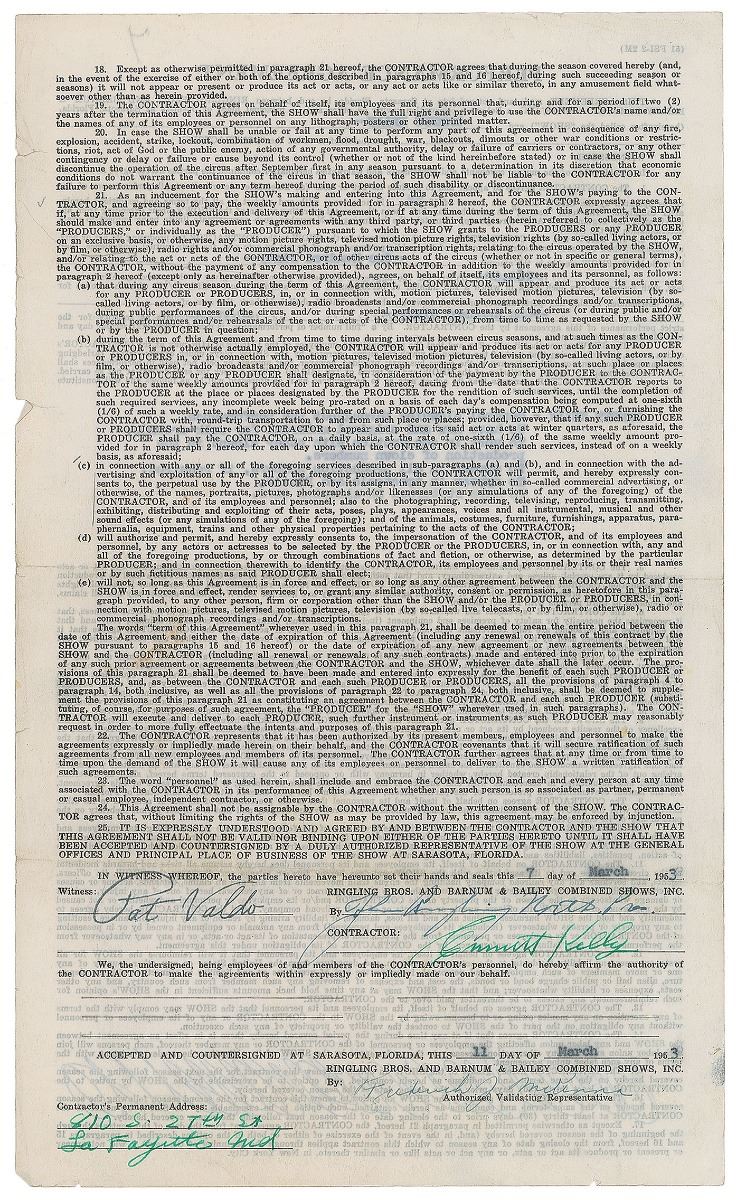 (51 FBI-2 2M)
18. Except as otherwise permitted in paragraph 21 hereof, the CONTRACTOR agrees that during the season covered hereby (and,
in the event of the exercise of either or both of the options described in paragraphs 15 and 16 hereof, during such succeeding season or
seasons) it will not appear or present or produce its act or acts, or any act or acts like or similar thereto, in any amusement field what-
soever other than as herein provided.
19. The CONTRACTOR agrees on behalf of itself, its employees and its personnel that, during and for a period of two (2)
years after the termination of this Agreement, the SHOW shall have the full right and privilege to use the CONTRACTOR's name and/or
the names of any of its employees or personnel on any lithograph, posters or other printed matter.
20. In case the SHOW shall be unable or fail at any time to perform any part of this agreement in consequence of any fire,
explosion, accident, strike, lockout, combination of workmen, food, drought, war, blackouts, dimouts or other war conditions or restric-
tions, riot, act of God or the public enemy, action of any governmental authority, delay or failure of carriers or contractors, or any other
contingency or delay or failure or cause beyond its control (whether or not of the kind hereinbefore stated) or in case the SHOW shall
discontinue the operation of the circus after September first in any season pursuant to a determination in its discretion that economic
conditions do not warrant the continuance of the circus in that season, the SHOW shall not be liable to the CONTRACTOR for any
failure to perform this Agreement or any term hereof during the period of such disability or discontinuance.
21. As an inducement for the SHOW's making and entering into this Agreement, and for the SHOW's paying to the CON-
TRACTOR, and agreeing so to pay, the weekly amounts provided for in paragraph 2 hereof, the CONTRACTOR expressly agrees that
if, at any time prior to the execution and delivery of this Agreement, or if at any time during the term of this Agreement, the SHOW
should make and enter into any agreement or agreements with any third party, or third parties (herein referred to collectively as the
"PRODUCERS," or individually as the "PRODUCER") pursuant to which the SHOW grants to the PRODUCERS or any PRODUCER
on an exclusive basis, or otherwise, any motion picture rights, televised motion picture rights, television rights (by so-called living actors, or
by film, or otherwise), radio rights and/or commercial phonograph and/or transcription rights, relating to the circus operated by the SHOW,
and/or relating to the act or acts of the CONTRACTOR, or of other circus acts of the circus (whether or not in specific or general terms),
the CONTRACTOR, without the payment of any compensation to the CONTRACTOR in addition to the weekly amounts provided for in
paragraph 2 hereof (except only as hereinafter otherwise provided), agrees, on behalf of itself, its employees and its personnel, as follows:
(a) that during any circus season during the term of this Agreement, the CONTRACTOR will appear and produce its act or acts
for any PRODUCER or PRODUCERS, in, or in connection with, motion pictures, televised motion pictures, television (by so-
called living actors, or by film, or otherwise), radio broadcasts and/or commercial phonograph recordings and/or transcriptions,
during public performances of the circus, and/or during special performances or rehearsals of the circus (or during public and/or
special performances and/or rehearsals of the act or acts of the CONTRACTOR), from time to time as requested by the SHOW
or by the PRODUCER in question;
(b) during the term of this Agreement and from time to time during intervals between circus seasons, and at such times as the CON-
TRACTOR is not otherwise actually employed, the CONTRACTOR will appear and produce its act or acts for any PRODUCER
or PRODUCERS in, or in connection with, motion pictures, televised motion pictures, television (by so-called living actors, or by
film, or otherwise), radio broadcasts and/or commercial phonograph recordings and/or transcriptions, at such place or places
as the PRODUCER or any PRODUCER shall designate, in consideration of the payment by the PRODUCER to the CONTRAC-
TOR of the same weekly amounts provided for in paragraph 2 hereof, dating from the date that the CONTRACTOR reports to
the PRODUCER at the place or places designated by the PRODUCER for the rendition of such services, until the completion of
such required services, any incomplete week being pro-rated on a basis of each day's compensation being computed at one-sixth
(1/6) of such a weekly rate, and in consideration further of the PRODUCER's paying the CONTRACTOR for, or furnishing the
CONTRACTOR with, round-trip transportation to and from such place or places; provided, however, that if any such PRODUCER
or PRODUCERS shall require the CONTRACTOR to appear and produce its said act or acts at winter quarters, as aforesaid, the
PRODUCER shall pay the CONTRACTOR, on a daily basis, at the rate of one-sixth (1/6) of the same weekly amount pro-
vided for in paragraph 2 hereof, for each day upon which the CONTRACTOR shall render such services, instead of on a weekly
basis, as aforesaid;
(c) in connection with any or all of the foregoing services described in sub-paragraphs (a) and (b), and in connection with the ad-
vertising and exploitation of any or all of the foregoing productions, the CONTRACTOR will permit, and hereby expressly con-
sents to, the perpetual use by the PRODUCER, or by its assigns, in any manner, whether in so-called commercial advertising, or
otherwise, of the names, portraits, pictures, photographs and/or likenesses (or any simulations of any of the foregoing) of the
CONTRACTOR, and of its employees and personnel; also to the photographing, recording, televising, reproducing, transmitting,
exhibiting, distributing and exploiting of their acts, poses, plays, appearances, voices and all instrumental, musical and other
sound effects (or any simulations of any of the foregoing); and of the animals, costumes, furniture, furnishings, apparatus, para-
phernalia, equipment, trains and other physical properties pertaining to the acts of the CONTRACTOR;
(d) will authorize and permit, and hereby expressly consents to, the impersonation of the CONTRACTOR, and of its employees and
personnel, by any actors or actresses to be selected by the PRODUCER or the PRODUCERS, in, or in connection with, any and
all of the foregoing productions, by or through combinations of fact and fiction, or otherwise, as determined by the particular
PRODUCER; and in connection therewith to identify the CONTRACTOR, its employees and personnel by its or their real names
or by such fictitious names as said PRODUCER shall elect;
(e) will not, so long as this Agreement is in force and effect, or so long as any other agreement between the CONTRACTOR and the
SHOW is in force and effect, render services to, or grant any similar authority, consent or permission, as heretofore in this para-
graph provided, to any other person, firm or corporation other than the SHOW and/or the PRODUCER or PRODUCERS, in con-
nection with motion pictures, televised motion pictures, television (by so-called live telecasts, or by film, or otherwise), radio or
commercial phonograph recordings and/or transcriptions.
The words "term of this Agreement" wherever used in this paragraph 21, shall be deemed to mean the entire period between the
date of this Agreement and either the date of expiration of this Agreement (including any renewal or renewals of this contract by the
SHOW pursuant to paragraphs 15 and 16 hereof) or the date of expiration of any new agreement or new agreements between the
SHOW and the CONTRACTOR (including all renewal or renewals of any such contracts) made and entered into prior to the expiration
of any such prior agreement or agreements between the CONTRACTOR and the SHOW, whichever date shall the later occur. The pro-
visions of this paragraph 21 shall be deemed to have been made and entered into expressly for the benefit of each such PRODUCER or
PRODUCERS, and, as between the CONTRACTOR and each such PRODUCER or PRODUCERS, all the provisions of paragraph 4 to
paragraph 14, both inclusive, as well as all the provisions of paragraph 22 to paragraph 24, both inclusive, shall be deemed to supple-
ment the provisions of this paragraph 21 as constituting an agreement between the CONTRACTOR and each such PRODUCER (substi-
tuting, of course, for purposes of such agreement, the "PRODUCER" for the "SHOW" wherever used in such paragraphs). The CON-
TRACTOR will execute and deliver to each PRODUCER, such further instrument or instruments as such PRODUCER may reasonably
request in order to more fully effectuate the intents and purposes of this paragraph 21.
22. The CONTRACTOR represents that it has been authorized by its present members, employees and personnel to make the
agreements expressly or impliedly made herein on their behalf, and the CONTRACTOR covenants that it will secure ratification of such
agreements from all new employees and members of its personnel. The CONTRACTOR further agrees that at any time or from time to
time upon the demand of the SHOW it will cause any of its employees or personnel to deliver to the SHOW a written ratification of
such agreements.
23. The word "personnel" as used herein, shall include and embrace the CONTRACTOR and each and every person at any time
associated with the CONTRACTOR in its performance of this Agreement whether any such person is so associated as partner, permanent
or casual employee, independent contractor, or otherwise.
24. This Agreement shall not be assignable by the CONTRACTOR without the written consent of the SHOW. The CONTRAC-
TOR agrees that, without limiting the rights of the SHOW as may be provided by law, this agreement may be enforced by injunction.
25. IT IS EXPRESSLY UNDERSTOOD AND AGREED BY AND BETWEEN THE CONTRACTOR AND THE SHOW THAT
THIS AGREEMENT SHALL NOT BE VALID NOR BINDING UPON EITHER OF THE PARTIES HERETO UNTIL IT SHALL HAVE
BEEN ACCEPTED AND COUNTERSIGNED BY A DULY AUTHORIZED REPRESENTATIVE OF THE SHOW AT THE GENERAL
OFFICES AND PRINCIPAL PLACE OF BUSINESS OF THE SHOW AT SARASOTA, FLORIDA.
IN WITNESS WHEREOF, the parties hereto have hereunto set their hands and seals this 7 day of March, 1953
Witness: RINGLING BROS. AND BARNUM & BAILEY COMBINED SHOWS, INC.
Pat Valdo By John Ringling North Pres.
CONTRACTOR:
Emmett Kelly
We, the undersigned, being employees of and members of the CONTRACTOR's personnel, do hereby affirm the authority of
the CONTRACTOR to make the agreements within expressly or impliedly made on our behalf.
ACCEPTED AND COUNTERSIGNED AT SARASOTA, FLORIDA, THIS 11 DAY OF March 1953
RINGLING BROS. AND BARNUM & BAILEY COMBINED SHOWS, INC.
By: Frederick J McKenna
Authorized Validating Representative
Contractor's Permanent Address:
810 S. 27TH St
La Fayette Ind